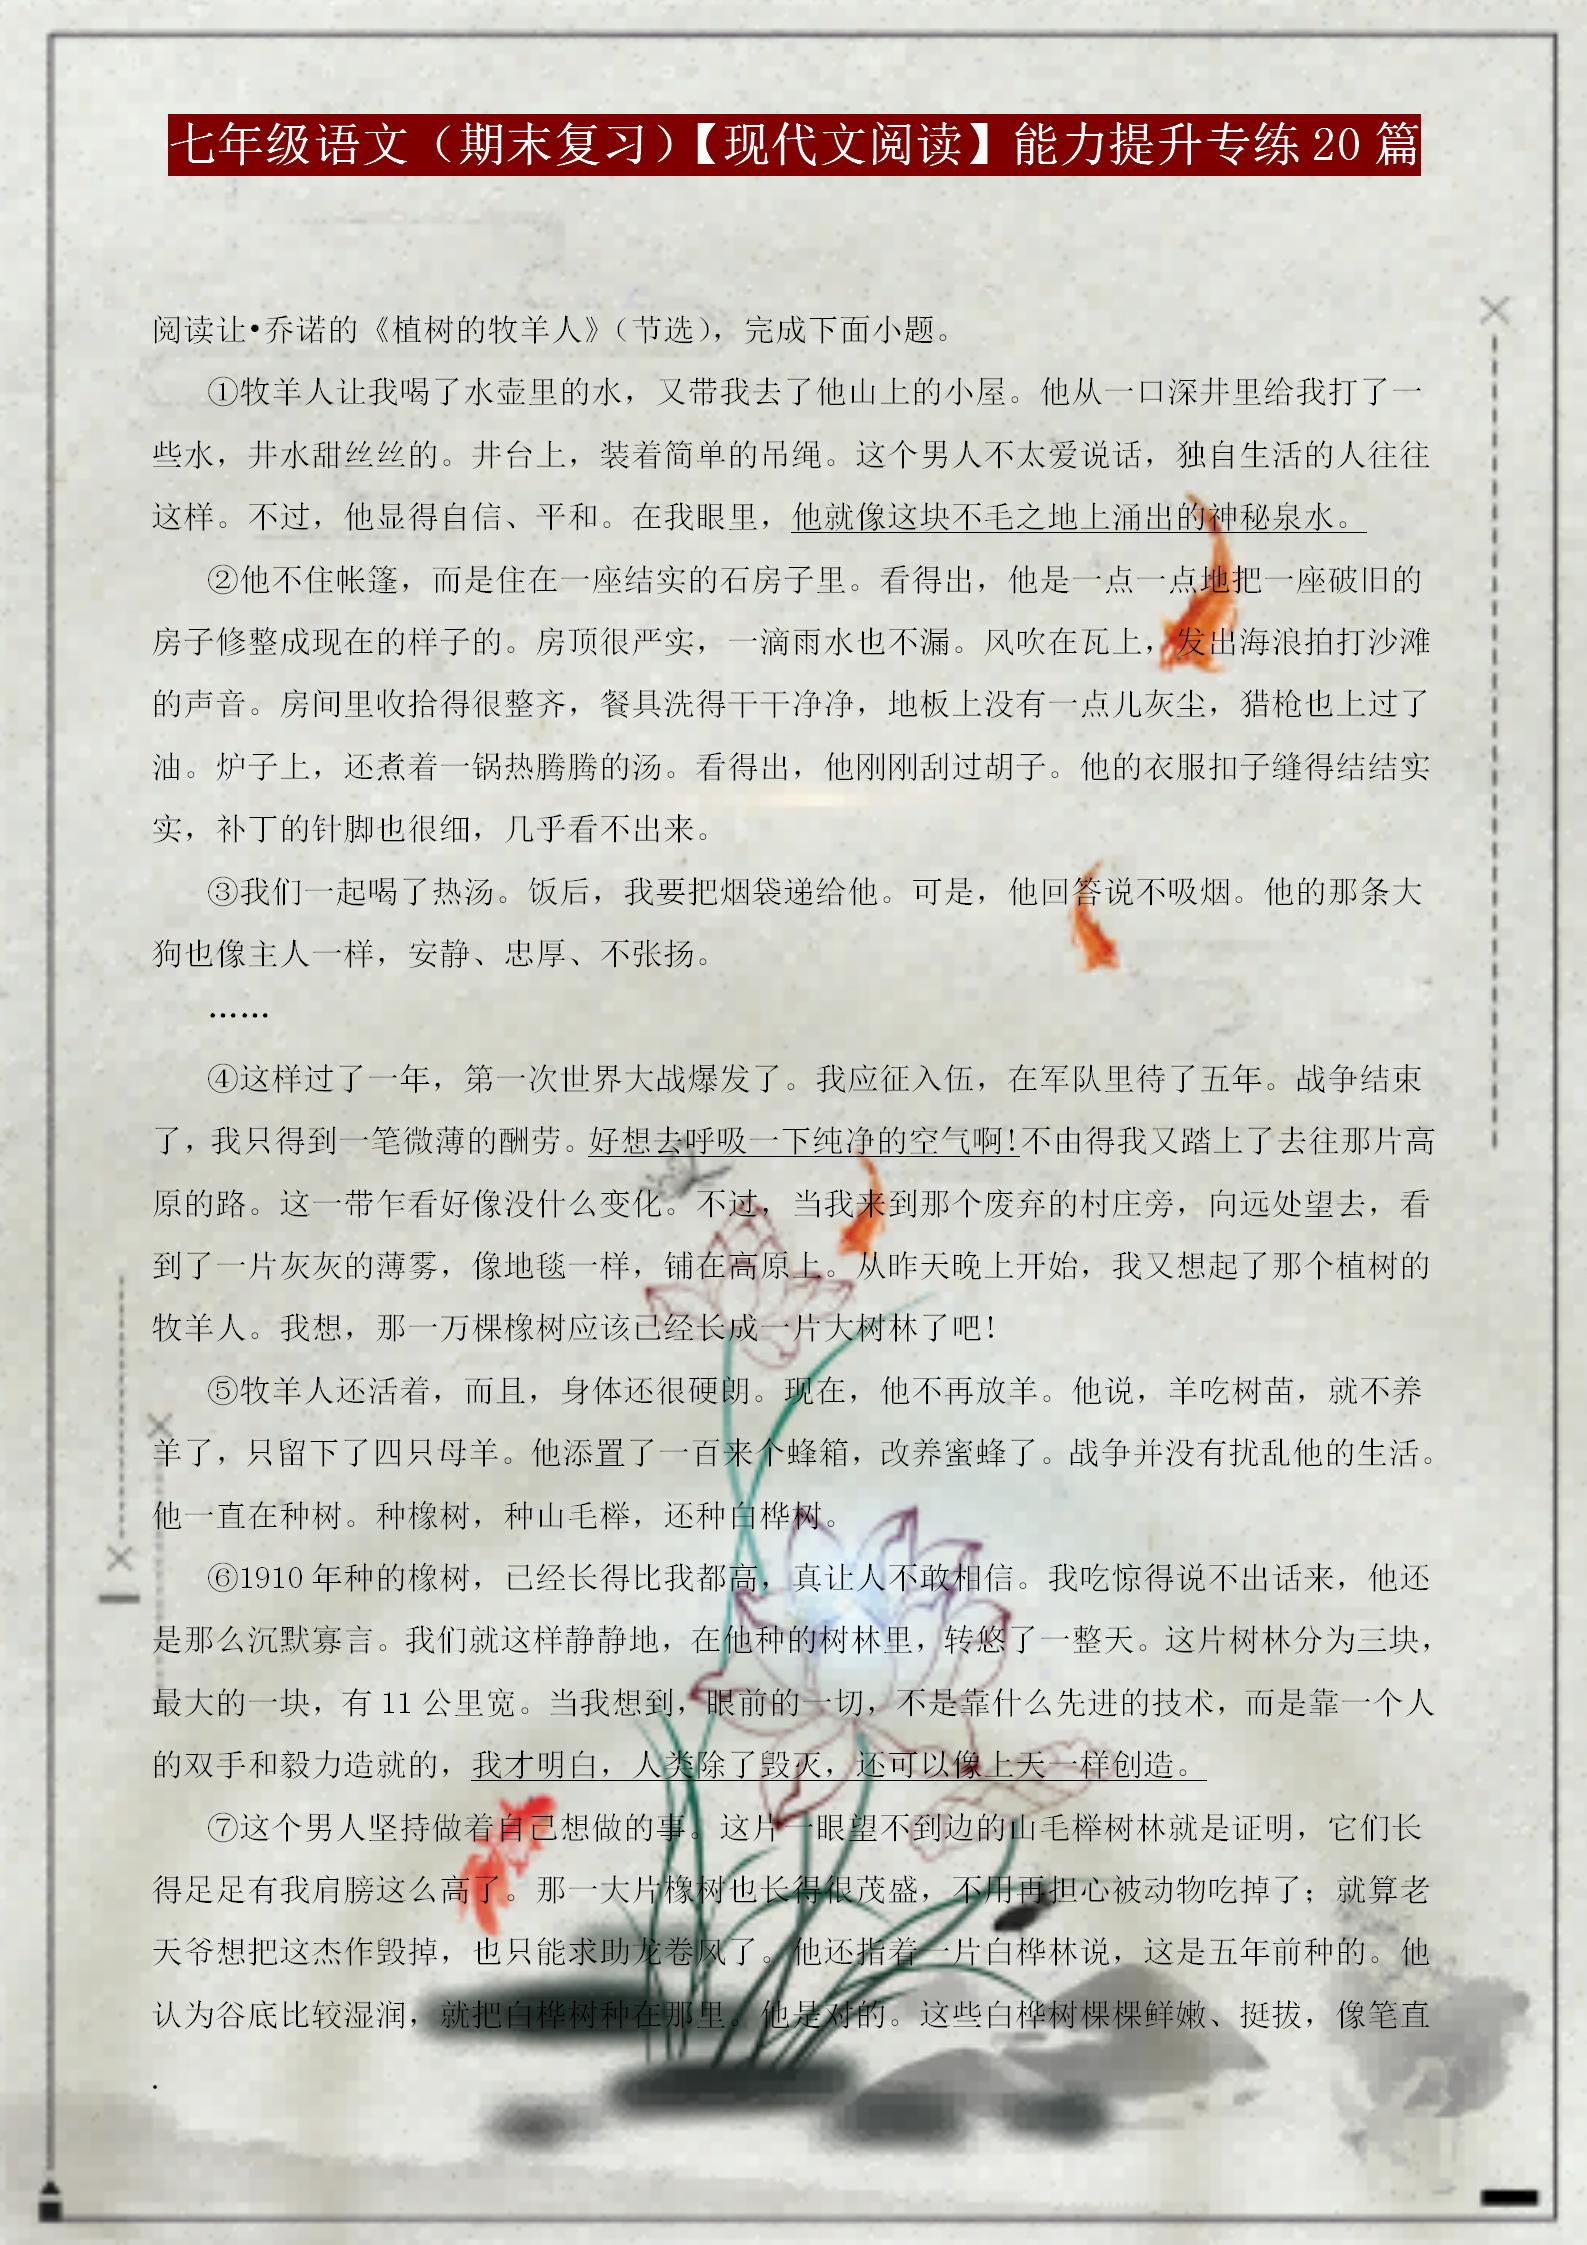 七年级语文（期末复习）【现代文阅读】能力提升专练20篇
阅读让•乔诺的《植树的牧羊人》（节选），完成下面小题。
①牧羊人让我喝了水壶里的水，又带我去了他山上的小屋。他从一口深井里给我打了一
些水，井水甜丝丝的。井台上，装着简单的吊绳。这个男人不太爱说话，独自生活的人往往
这样。不过，他显得自信、平和。在我眼里，他就像这块不毛之地上涌出的神秘泉水。
②他不住帐篷，而是住在一座结实的石房子里。看得出，他是一点一点地把一座破旧的
房子修整成现在的样子的。房顶很严实，一滴雨水也不漏。风吹在瓦上，发出海浪拍打沙滩
的声音。房间里收拾得很整齐，餐具洗得干干净净，地板上没有一点儿灰尘，猎枪也上过了
油。炉子上，还煮着一锅热腾腾的汤。看得出，他刚刚刮过胡子。他的衣服扣子缝得结结实
实，补丁的针脚也很细，几乎看不出来。
③我们一起喝了热汤。饭后，我要把烟袋递给他。可是，他回答说不吸烟。他的那条大
狗也像主人一样，安静、忠厚、不张扬。
……
④这样过了一年，第一次世界大战爆发了。我应征入伍，在军队里待了五年。战争结束
了，我只得到一笔微薄的酬劳。好想去呼吸一下纯净的空气啊！不由得我又踏上了去往那片高
原的路。这一带乍看好像没什么变化。不过，当我来到那个废弃的村庄旁，向远处望去，看
到了一片灰灰的薄雾，像地毯一样，铺在高原上。从昨天晚上开始，我又想起了那个植树的
牧羊人。我想，那一万棵橡树应该已经长成一片大树林了吧！
⑤牧羊人还活着，而且，身体还很硬朗。现在，他不再放羊。他说，羊吃树苗，就不养
羊了，只留下了四只母羊。他添置了一百来个蜂箱，改养蜜蜂了。战争并没有扰乱他的生活。
他一直在种树。种橡树，种山毛榉，还种白桦树。
⑥1910年种的橡树，已经长得比我都高，真让人不敢相信。我吃惊得说不出话来，他还
是那么沉默寡言。我们就这样静静地，在他种的树林里，转悠了一整天。这片树林分为三块，
最大的一块，有11公里宽。当我想到，眼前的一切，不是靠什么先进的技术，而是靠一个人
的双手和毅力造就的，我才明白，人类除了毁灭，还可以像上天一样创造。
⑦这个男人坚持做着自己想做的事。这片一眼望不到边的山毛榉树林就是证明，它们长
得足足有我肩膀这么高了。那一大片橡树也长得很茂盛，不用再担心被动物吃掉了；就算老
天爷想把这杰作毁掉，也只能求助龙卷风了。他还指着一片白桦林说，这是五年前种的。他
认为谷底比较湿润，就把白桦树种在那里。他是对的。这些白桦树棵棵鲜嫩、挺拔，像笔直
.